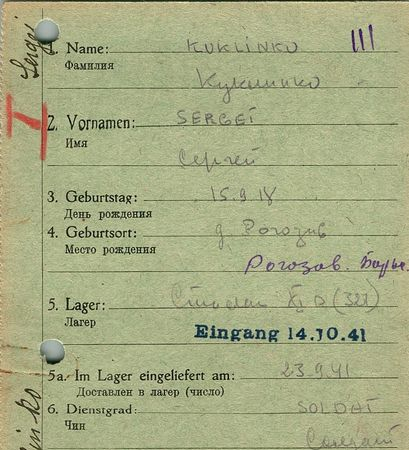 Sergei
III
1. Name: KUKLINKO
Фамилия
Куклинко
2. Vornamen: SERGEI
Имя
Сергей
3. Geburtstag: 15.9.18
День рождения
4. Geburtsort: д Рогозив
Место рождения
Рогозов.
5. Lager: XI D (321)
Лагер
Eingang 14.10.41
5a. Im Lager eingeliefert am: 23.9.41
Доставлен в лагер (число)
6. Dienstgrad: SOLDAT
Чин
Солдат